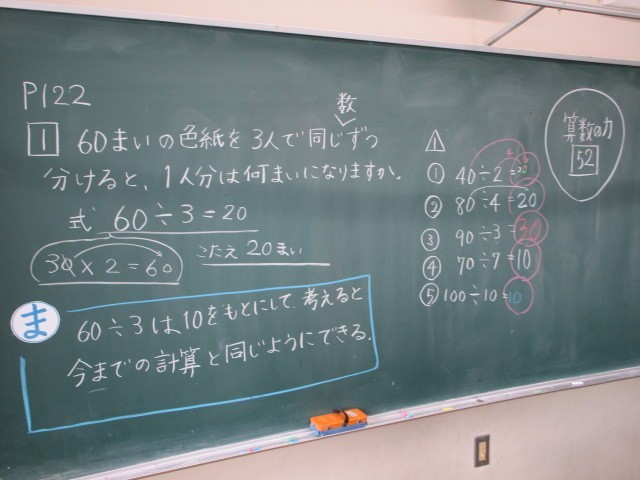 P122
1 60まいの色紙を3人で同じ数ずつ
分けると、1人分は何まいになりますか。
式 60÷3=20
こたえ 20まい
30×2=60
ま
60÷3は10をもとにして、考えると
今までの計算と同じようにできる。
① 40÷2=20
② 80÷4=20
③ 90÷3=30
④ 70÷7=10
⑤ 100÷10=10
算数の力
52